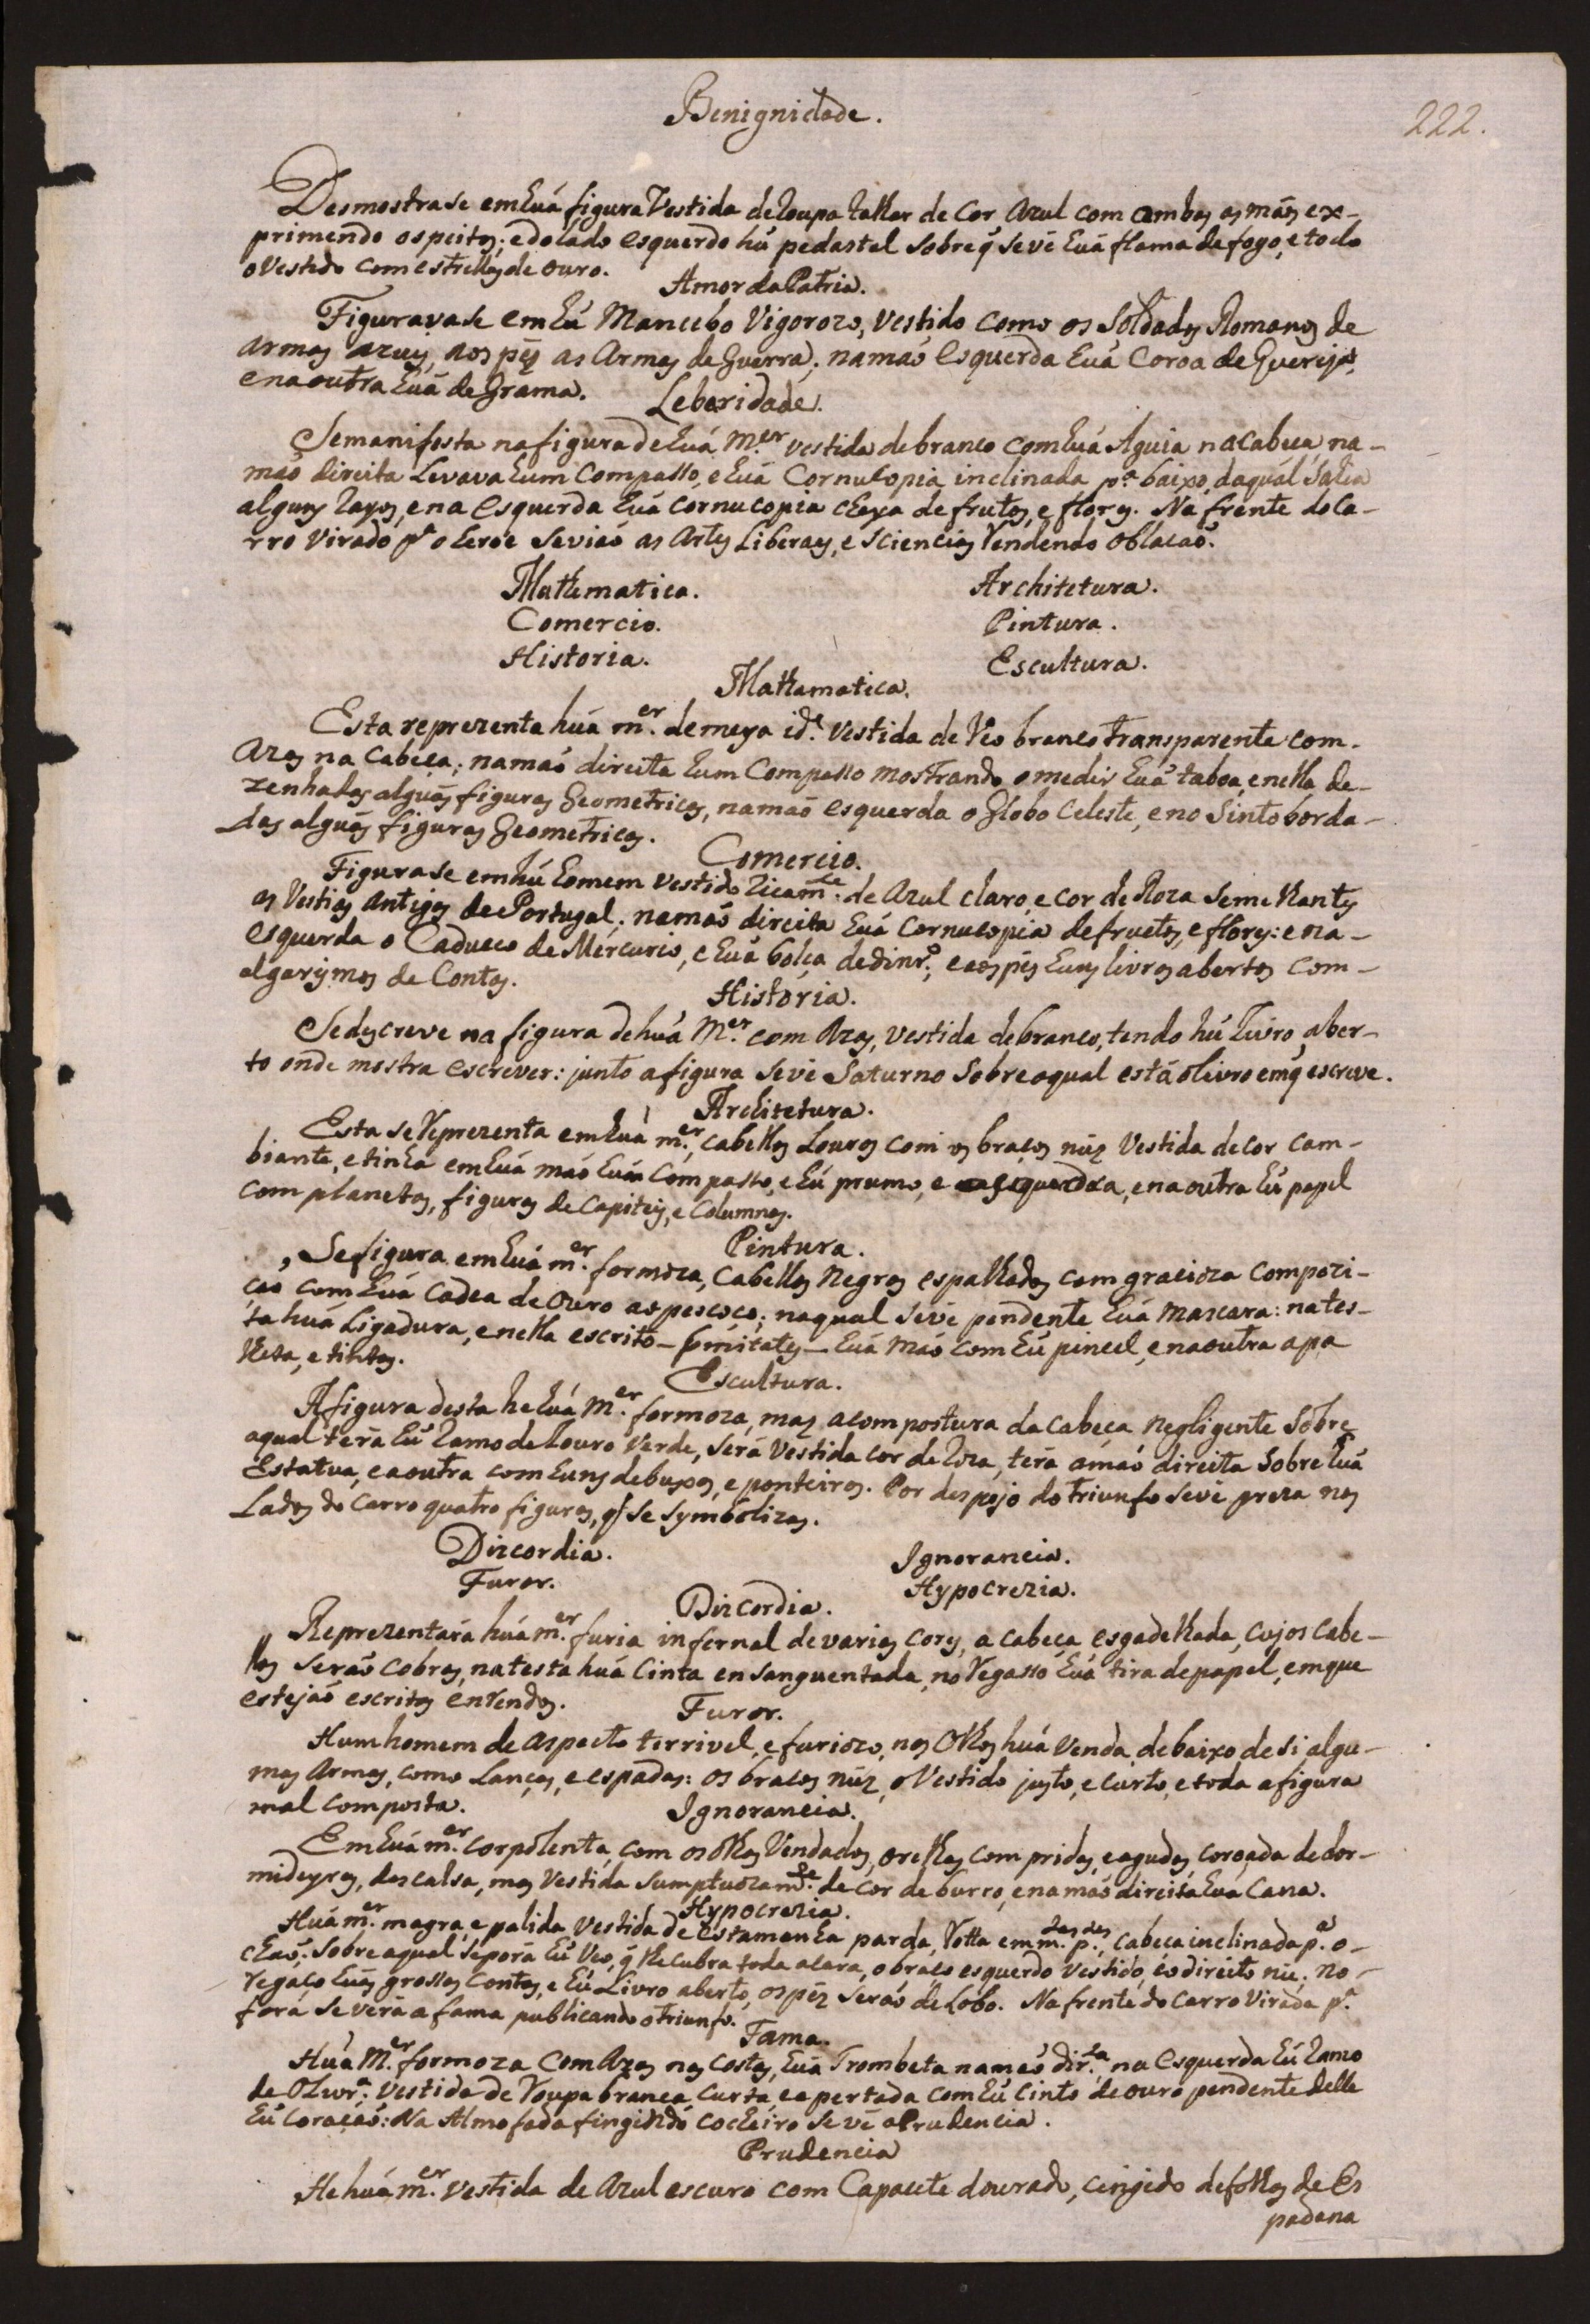 Benignidade.
222.
Desmostrase em huá figura Vestida de Roupa talhar de Cor Azul com ambas as máos ex-
primendo os peitos; e do lado esquerdo hú pedastal sobre q̃ se vé huá flama de fogo, e todo
o Vestido com estrellas de ouro.
Amor da Patria.
Figuravase em hú Mancebo Vigorozo, Vestido como os Soldados Romanos de
armas azues, aos pés as Armas de Guerra; na maó esquerda huá Coroa de
e na outra huá de Grama.
Leberidade.
Se manifesta na figura de huá M.er vestida de branco com huá Aguia na Cabeca, na-
maó direita Levava hum Compasso, e huá Cornucopia inclinada p.a baixo, da qual Sahia
alguns Rayos, e na esquerda huá Cornucopia cheya de frutos, e flores. Na frente do Ca-
rro Virado p.a o heroe se viaó as Artes Liberaes, e Sciencias Rendendo oblacaó.
Mathematica.
Architetura.
Comercio.
Pintura.
Historia.
Escultura.
Mathamatica.
Esta reprezenta huá m.er de meya id.e Vestida de Véo branco transparente com-
Azas na Cabeça; na maó direita hum Compasso mostrando o medir huá taboa, e nella de-
zenhadas alguás figuras Geometricas, na maó esquerda o Globo Celeste, e no Sinto borda-
das alguás figuras Geometricas.
Comercio.
Figurase em hú homem Vestido Ricam.te de Azul claro, e cor de Roza Semelhantes
as Vestias Antigas de Portugal; na maó direita huá Cornucopia de fructos, e flores: e na-
esquerda o Caduceo de Mercurio, e huá bolça de dinr.o; e aos pés huns livros abertos com-
algarismos de Contas.
Historia.
Se descreve na figura de huá M.er com Azas, vestida de branco, tendo hú Livro aber-
to onde mostra escrever: junto a figura se vé Saturno Sobre o qual está o livro em q̃ escreve.
Architetura.
Esta se Reprezenta em huá m.er, cabellos Louros com os bracos núz Vestida de cor cam-
biante, e tinha em huá maó huá Compasso, e hú prumo, e esquadra, e na outra hú papel
com planetas, figuras de Capiteis, e Columnas.
Pintura.
Se figura em huá m.er formoza, Cabellos Negros espalhados com gracioza Compozi-
çaó com huá Cadea de Ouro ao pescoço; na qual se vé pendente huá mascara: na tes-
ta huá Ligadura, e nella escrito - Imitates - huá Maó com hú pincel, e na outra a pa
lheta, e tintas.
Escultura.
A figura desta he huá M.er formoza, mas a compostura da cabeça Negligente Sobre
a qual terá hú Ramo de Louro Verde, Será Vestida cor de Roza, terá a maó direita Sobre huá
Estatua, e a outra com huns debuxos, e ponteiros. Por despojo do triunfo se vé preza nos
Lados do Carro quatro figuras, q̃ se Symbolizas.
Dizcordia.
Ignorancia.
Furor.
Hypocrezia.
Dizcordia.
Reprezentará huá m.er furia infernal de varias Cores, a cabeça esgadelhada, cujos cabe-
llos Seraó Cobras, na testa huá Cinta ensanguentada, no Regasso huá tira de papel, em que
estejaó escritos enrendos.
Furor.
Hum homem de aspecto terrivel, e furiozo, nos Olhos huá Venda, debaixo de si algu-
mas Armas, como Lanças, e espadas: os bracos núz, o Vestido justo, e curto, e toda a figura
mal composta.
Ignorancia.
Em huá m.er corpolenta, com os olhos Vendados, orelhas compridas, e agudas, coroada de dor-
mideyras, descalsa, mas Vestida Sumptuozam.te de Cor de burro, e na maó direita huá Cana.
Hypocrezia.
Huá m.er magra, e palida Vestida de estamenha parda, Rotta em m.tas p.tes, cabeça inclinada p.a o-
chaó; Sobre a qual se porá hú Veo, q̃ lhe cubra toda a cara, o braço esquerdo Vestido, e o direito nú; no-
regaço huás grossas Contas, e hú Livro aberto, os péz seraó de Lobo. Na frente do Carro Virada p.a
forá se verá a fama publicando o triunfo.
Fama.
Huá M.er formoza Com Azas nas Costas, huá Trombeta na maó dir.ta, na Esquerda hú Ramo
de Oliur.a; Vestida de Roupa branca Curta, e apertada com hú Cinto de ouro, pendente delle
hú Coraçaó: Na Almofada fingindo cocheiro se vé a Prudencia.
Prudencia
He huá m.er Vestida de Azul escuro com Capacete dourado, cingido de folhas de Es
padana